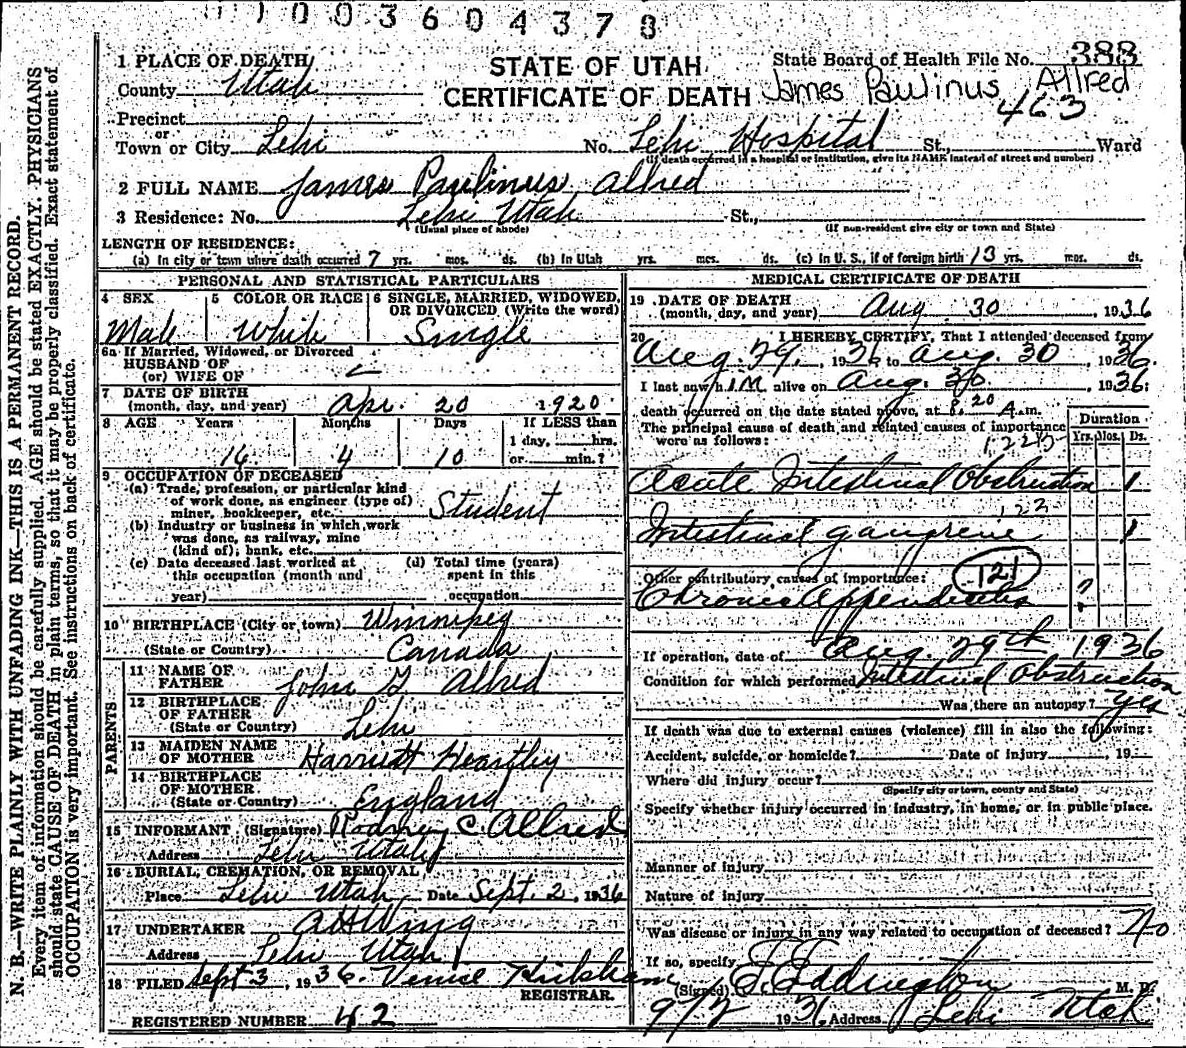 1003604378
STATE OF UTAH
CERTIFICATE OF DEATH
State Board of Health File No. 388
James Paulinus Allred
463
1 PLACE OF DEATH
County Utah
Precinct
or
Town or City Lehi No. Lehi Hospital St., Ward
(If death occurred in a hospital or institution, give its NAME instead of street and number)
2 FULL NAME James Paulinus Allred
3 Residence: No. Lehi Utah St.,
(Usual place of abode) (If non-resident give city or town and State)
LENGTH OF RESIDENCE:
(a) In city or town where death occurred 7 yrs. mos. ds. (b) In Utah yrs. mos. ds. (c) In U. S., if of foreign birth 13 yrs. mos. ds.
PERSONAL AND STATISTICAL PARTICULARS
4 SEX 5 COLOR OR RACE 6 SINGLE, MARRIED, WIDOWED,
OR DIVORCED (Write the word)
Male White Single
6a If Married, Widowed, or Divorced
HUSBAND OF
(or) WIFE OF
7 DATE OF BIRTH
(month, day, and year) Apr. 20 1920
8 AGE Years Months Days If LESS than
1 day, hrs.
16 4 10 or min.?
9 OCCUPATION OF DECEASED
(a) Trade, profession, or particular kind
of work done, as engineer (type of)
miner, bookkeeper, etc. Student
(b) Industry or business in which work
was done, as railway, mine
(kind of); bank, etc.
(c) Date deceased last worked at
this occupation (month and
year)
(d) Total time (years)
spent in this
occupation
10 BIRTHPLACE (City or town) Winnipeg
(State or Country) Canada
PARENTS
11 NAME OF
FATHER John G. Allred
12 BIRTHPLACE
OF FATHER
(State or Country) Lehi
13 MAIDEN NAME
OF MOTHER Harriett Heartley
14 BIRTHPLACE
OF MOTHER
(State or Country) England
15 INFORMANT (Signature) Rodney C. Allred
Address Lehi Utah
16 BURIAL, CREMATION, OR REMOVAL
Place Lehi Utah Date Sept. 2, 1936
17 UNDERTAKER A H Wing
Address Lehi Utah
18 FILED Sept 3, 1936. Venice
REGISTRAR.
REGISTERED NUMBER 42
MEDICAL CERTIFICATE OF DEATH
19 DATE OF DEATH
(month, day, and year) Aug 30, 1936
20 I HEREBY CERTIFY, That I attended deceased from
Aug. 29, 1936 to Aug. 30, 1936.
I last saw him alive on Aug. 30, 1936;
death occurred on the date stated above, at 8:20 A.m.
The principal cause of death and related causes of importance
were as follows: Duration
Yrs. Mos. Ds.
122b
Acute Intestinal Obstruction 1
123
Intestinal gangrene 1
Other contributory causes of importance: 121
Chronic Appendicitis ?
If operation, date of Aug. 29th 1936
Condition for which performed Intestinal Obstruction
Was there an autopsy? Yes
If death was due to external causes (violence) fill in also the following:
Accident, suicide, or homicide? Date of injury , 19
Where did injury occur?
(Specify city or town, county and State)
Specify whether injury occurred in industry, in home, or in public place.
Manner of injury
Nature of injury
Was disease or injury in any way related to occupation of deceased? No
If so, specify
(Signed) E. Eddington M. D.
9/2 1936, Address Lehi Utah
N. B.—WRITE PLAINLY WITH UNFADING INK—THIS IS A PERMANENT RECORD.
Every item of information should be carefully supplied. AGE should be stated EXACTLY. PHYSICIANS
should state CAUSE OF DEATH in plain terms, so that it may be properly classified. Exact statement of
OCCUPATION is very important. See instructions on back of certificate.